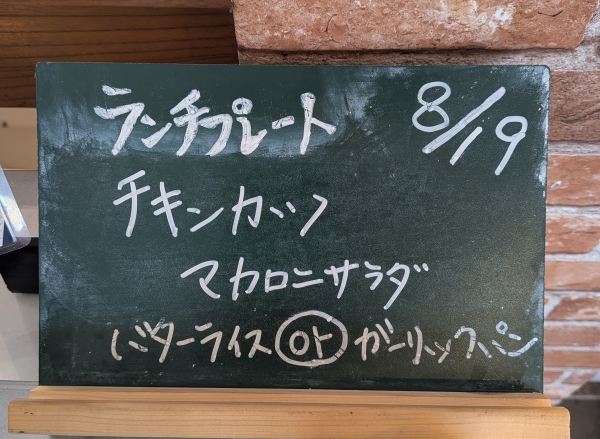 ランチプレート 8/19
チキンカツ
マカロニサラダ
バターライス or ガーリックパン